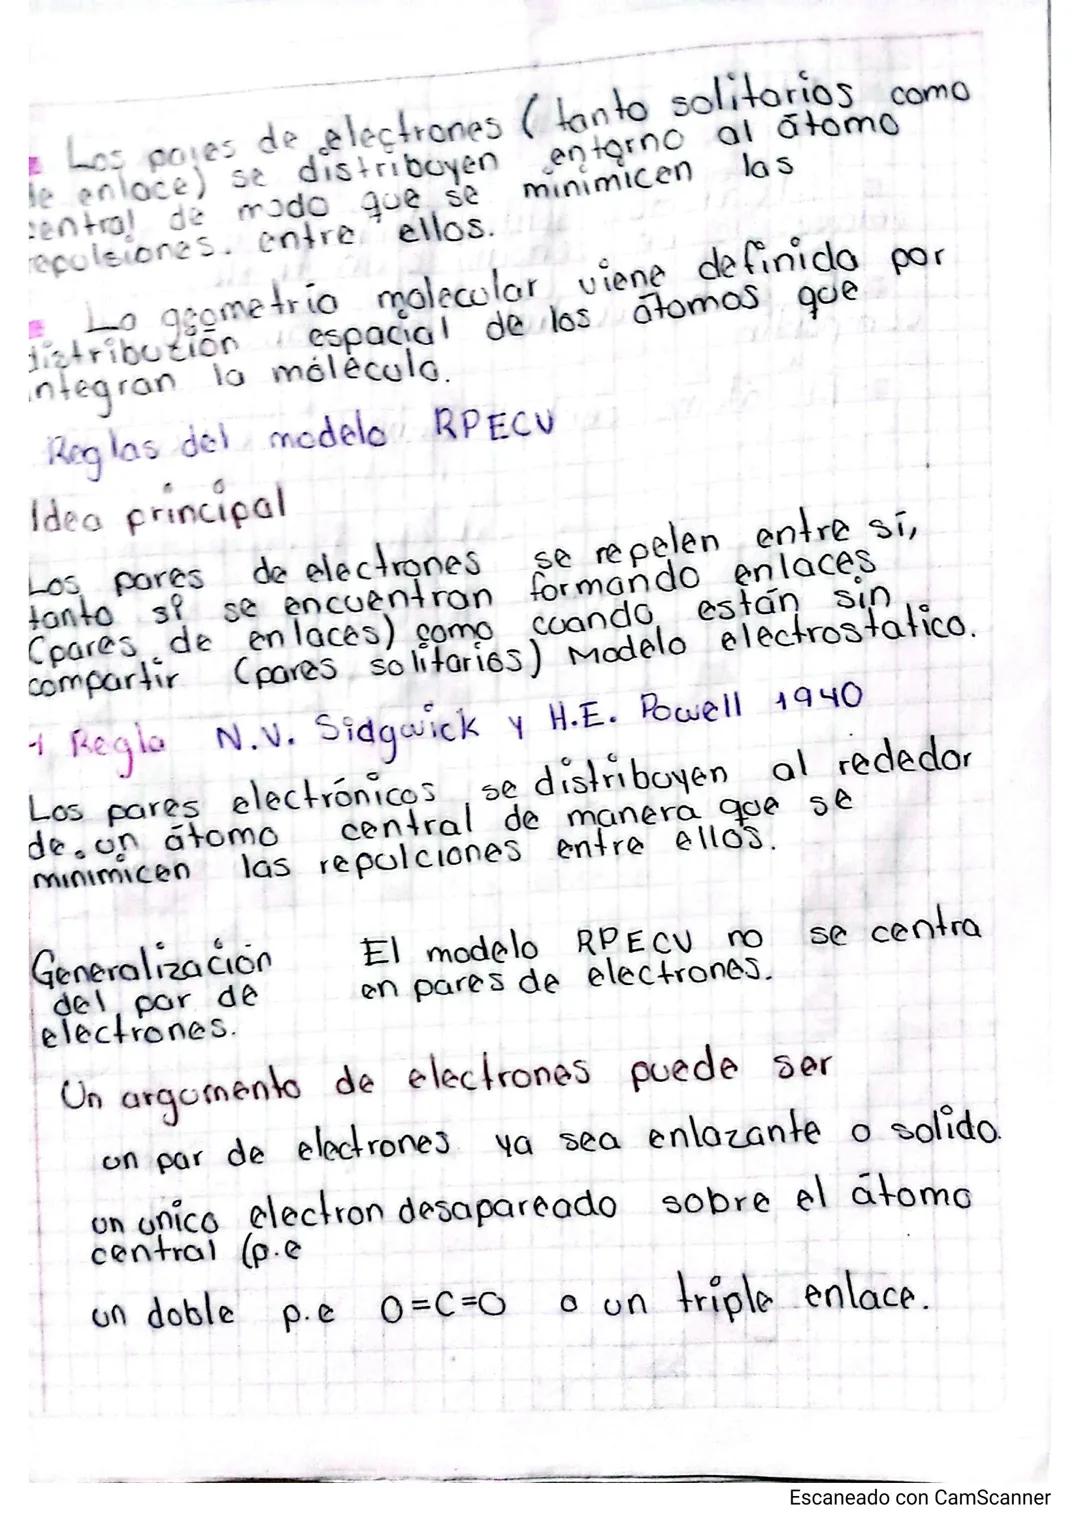 Los pares de electrones (tanto solitarios como
de enlace) se distribuyen entorno al átomo
central de modo que se minimicen las
repulsiones. entre ellos.
La geometria molecular viene definida por
distribución espacial de los átomos que
integran la molécula.
Reglas del modelo RPECV
Idea principal
Los pares de electrones se repelen entre sí,
tanto si se encuentran formando enlaces
(pares de enlaces) como cuando están sin
compartir (pares solitarios) Modelo electrostatico.
1 Regla N.V. Sidgwick y H.E. Powell 1940
Los pares electrónicos se distribuyen al rededor
de un átomo central de manera que se
minimicen las repulciones entre ellos.
Generalización El modelo RPECV no se centra
del par de en pares de electrones.
electrones.
Un argumento de electrones puede ser
un par de electrones ya sea enlazante o solido.
un unico electron desapareado sobre el átomo
central (p.e
un doble p.e O=C=O o un triple enlace.
Escaneado con CamScanner